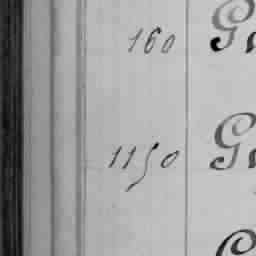 160 G
1150 G